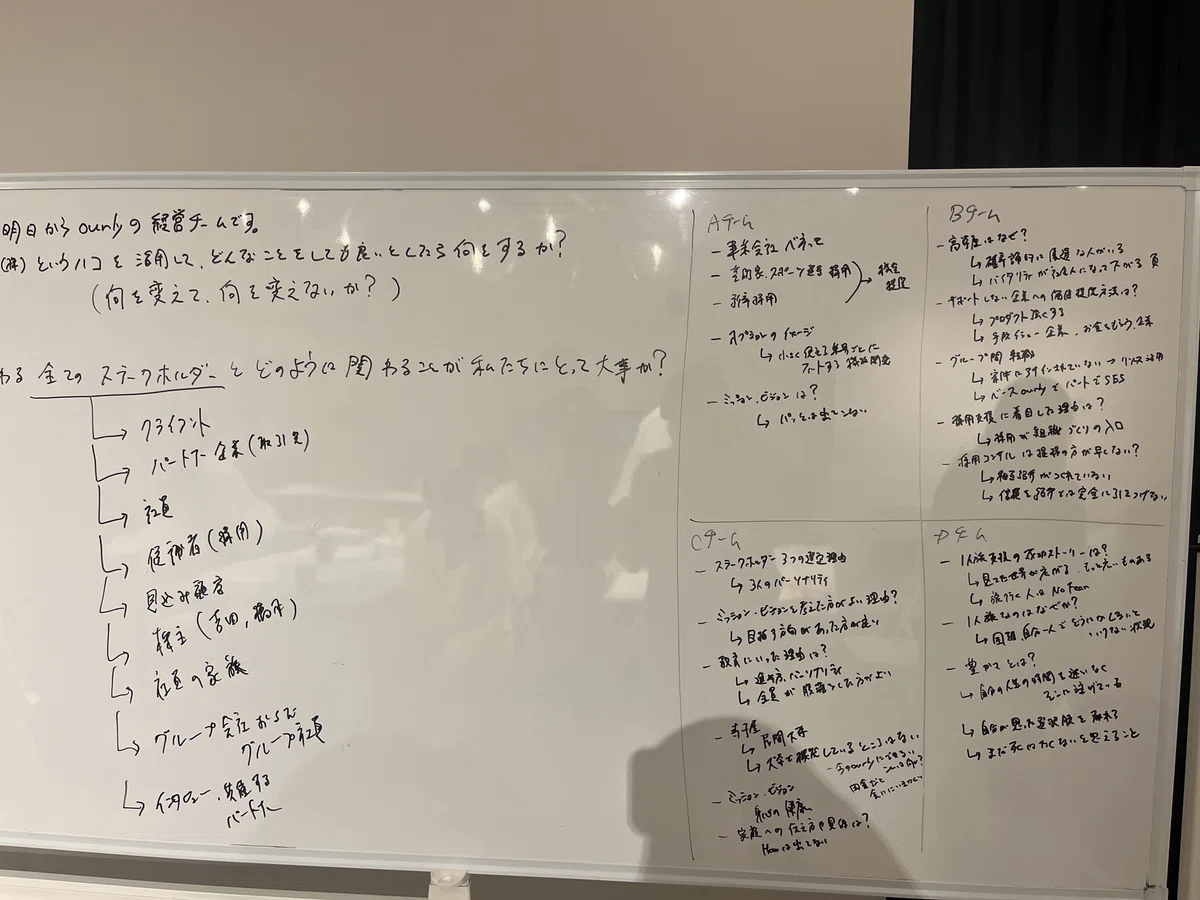 明日から ourlyの経営チームです。
(株)というハコを活用して、どんなことをしても良いとしたら何をするか?
(何を変えて、何を変えないか?)
わる 全てのステークホルダーとどのように関わることが私たちにとって大事か?
↳ クライアント
↳ パートナー企業(取引先)
↳ 社員
↳ 候補者(採用)
↳ 見込み顧客
↳ 株主(吉田,
↳ 社員の家族
↳ グループ会社および
グループ社員
↳ インタビュー・
パートナー
Aチーム
- 事業会社
- 芸術家、スポーツ選手 採用
- 新卒採用
機会
提供
- オプションのイメージ
↳ 小さく使える単位ごとに
フィットする機能開発
- ミッション、ビジョンは?
↳ パッとは出ていない
Bチーム
- 高年度はなぜ?
↳ 確率論的に 人がいる
↳ バイタリティが
- サポートしない企業への価値提供方法は?
↳ プロダクト強くする
↳ 企業、お金をもらう企業
- グループ間転職
↳ 実体に アサインされていない →
↳ ベース ourlyで パートで SES
- 採用支援に着目した理由は?
↳ 採用が組織づくりの入口
- 採用コンサルは提携の方が早くない?
↳ 相互紹介がつくれていない
↳ 信頼を紹介とは完全に引きつけない
Cチーム
- ステークホルダー 3つの選定理由
↳ 3人のパーソナリティ
- ミッション・ビジョンを考えた方がよい理由?
↳ 目指す方向があった方が良い
- 教育にいった理由は?
↳ 進め方、パーソナリティ
↳ 全員が腹落ちした方がよい
- 寺子屋
↳ 人間大学
↳ 大卒で 探究しているところはない
- 今のourlyにできない
- ミッション・ビジョン
身心の健康
- 家庭への伝え方や具体は?
Howは出てない
Dチーム
- 1人旅支援の成功ストーリーは?
↳ 見てた世界が広がる、もっと良いものある
↳ 旅行く人は No Fear
- 1人旅なのはなぜか?
↳ 自分一人でどうにかしないと
いけない状況
- 豊かさとは?
↳ 自分の人生の時間を迷いなく
そこに注げている
↳ 自分が思った選択肢を取れる
↳ まだ死にたくないと思えること